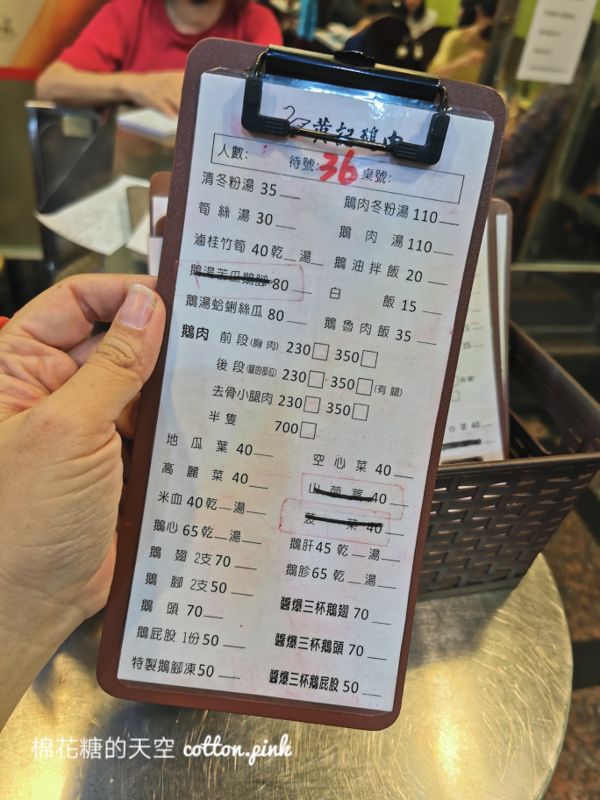 黃叔鵝肉
人數: 待號: 36 桌號:
清冬粉湯 35 鵝肉冬粉湯 110
筍絲湯 30 鵝肉湯 110
滷桂竹筍 40 乾__湯__ 鵝油拌飯 20
鵝湯苦瓜鵝腳 80 白飯 15
鵝湯蛤蜊絲瓜 80 鵝魯肉飯 35
鵝肉 前段(胸肉) 230□ 350□
後段(腿的部位) 230□ 350□(有腿)
去骨小腿肉 230□ 350□
半隻 700□
地瓜葉 40 空心菜 40
高麗菜 40 山茼蒿 40
米血 40 乾__湯 菠菜 40
鵝心 65 乾__湯 鵝肝 45 乾__湯
鵝翅 2支 70 鵝胗 65 乾__湯
鵝腳 2支 50 醬爆三杯鵝翅 70
鵝頭 70 醬爆三杯鵝頭 70
鵝屁股 1份 50 醬爆三杯鵝屁股 50
特製鵝腳凍 50
菜 40
40
棉花糖的天空 cotton.pink